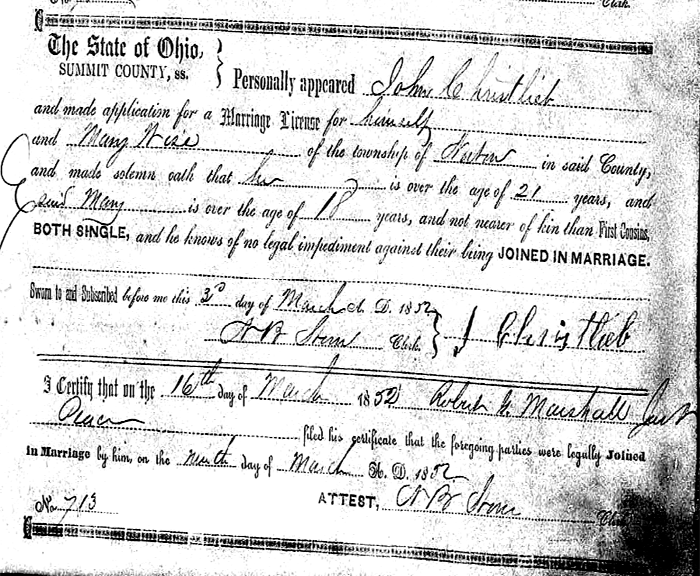 Clerk.
The State of Ohio,
SUMMIT COUNTY, ss.
Personally appeared John Christlieb
and made application for a Marriage License for himself
and Mary Wise of the township of Norton in said County,
and made solemn oath that he is over the age of 21 years, and
said Mary is over the age of 18 years, and not nearer of kin than First Cousins,
BOTH SINGLE, and he knows of no legal impediment against their being JOINED IN MARRIAGE.
Sworn to and Subscribed before me this 3d day of March A. D. 1852
N B Stone Clerk. J Christlieb
I Certify that on the 16th day of March 1852 Robert Marshall Just
Peace filed his certificate that the foregoing parties were legally Joined
in Marriage by him, on the ninth day of March A. D. 1852
ATTEST, N B Stone Clerk
No 713